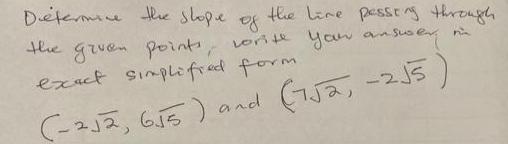 Determine the slope of the line passing through
the given points, write your answer in
exact simplified form
(-2√2, 6√5) and (7√2, -2√5)